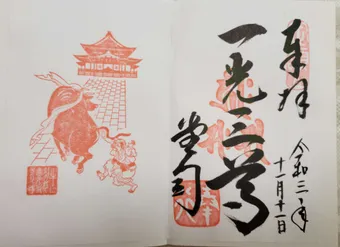 奉拝
令和三年
十一月十一日
一光三尊
堂司